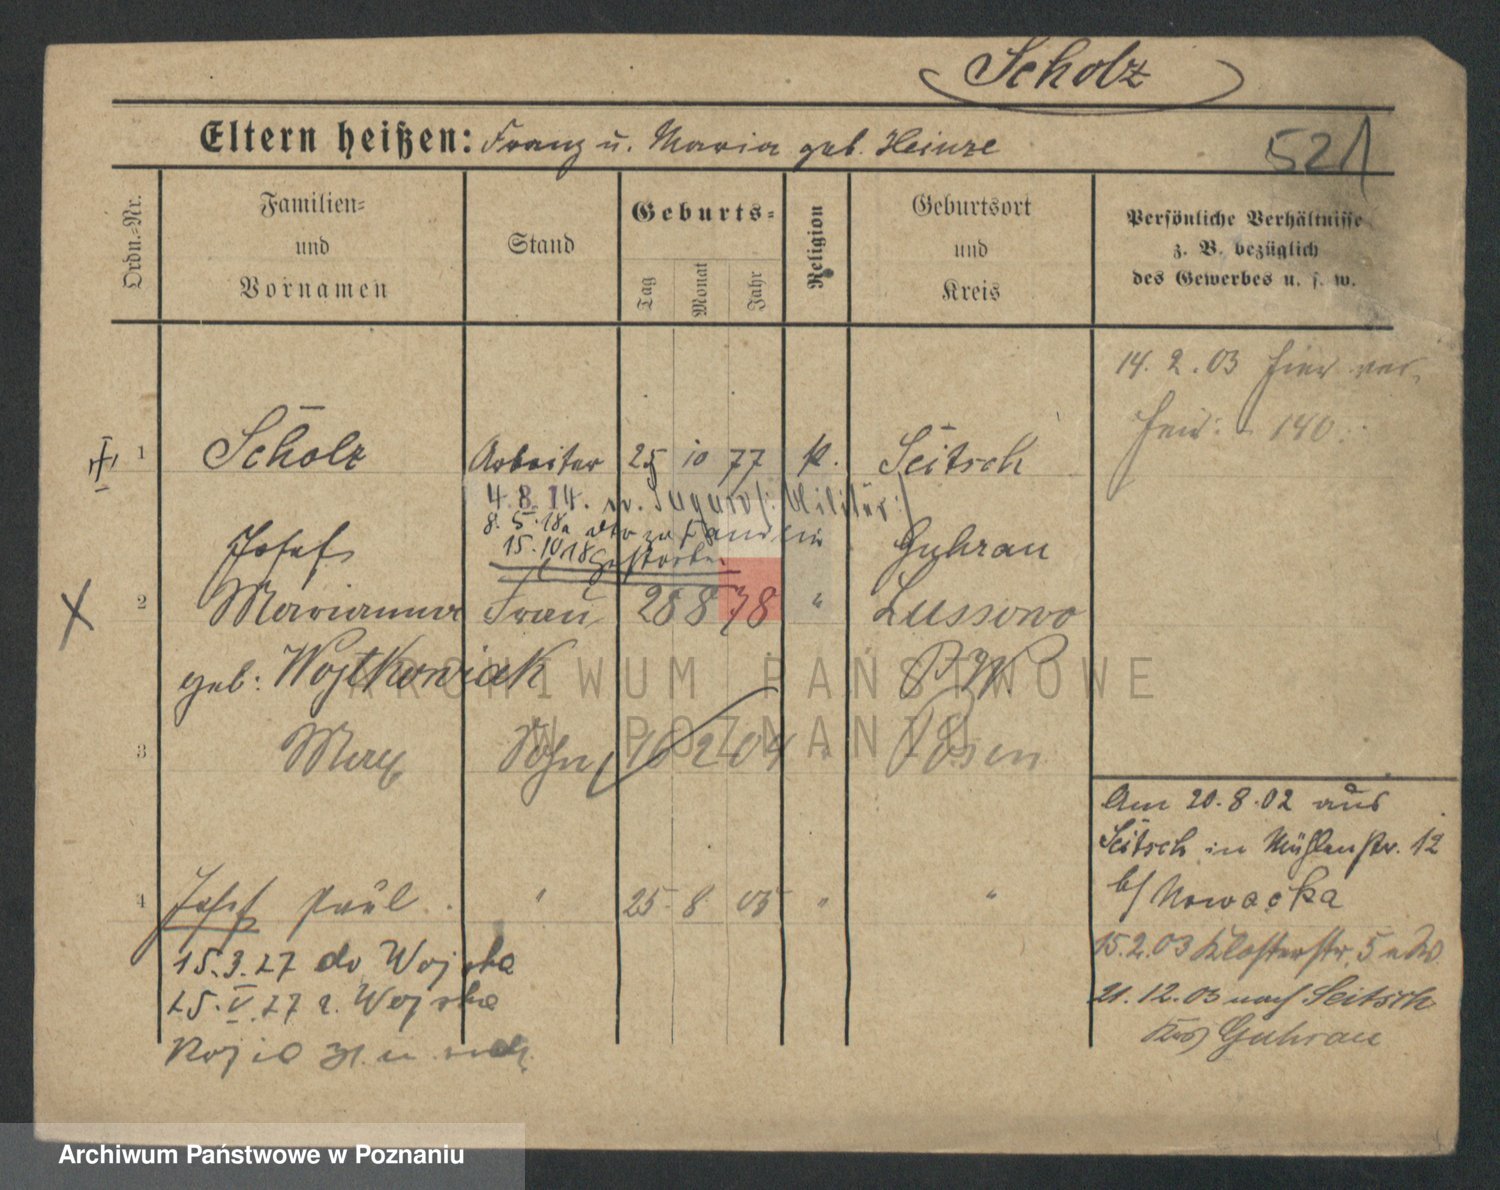 Scholz
Eltern heißen: Franz u. Maria geb. Heinze
521
Ordn.-Nr.
Familien-
und
Vornamen
Stand
Geburts-
Tag
Monat
Jahr
Religion
Geburtsort
und
Kreis
Persönliche Verhältnisse
z. B. bezüglich
des Gewerbes u. s. w.
14. 2. 03 hier ver
heir: 140
1 Scholz Arbeiter 25 10 77 k. Seitsch
4. 8. 14. Militär
8. 5. 18
15. 10 18 gestorben
Josef Guhrau
2 Marianna Frau 28 8 78 " Lussowo
geb: Wojtkowiak P.W.
3 Max Sohn 16 2 04 " Posen
Am 20. 8. 02 aus
Seitsch in Mühlenstr. 12
b/ Nowacka
4 Josef Paul " 25 8 05 " "
15. 2. 03 Klosterstr. 5
21. 12. 03 nach Seitsch
Krs Guhrau
15. 3. 27 do Wojska
25. V. 27 z Wojska
ARCHIWUM PAŃSTWOWE
W POZNANIU
Archiwum Państwowe w Poznaniu